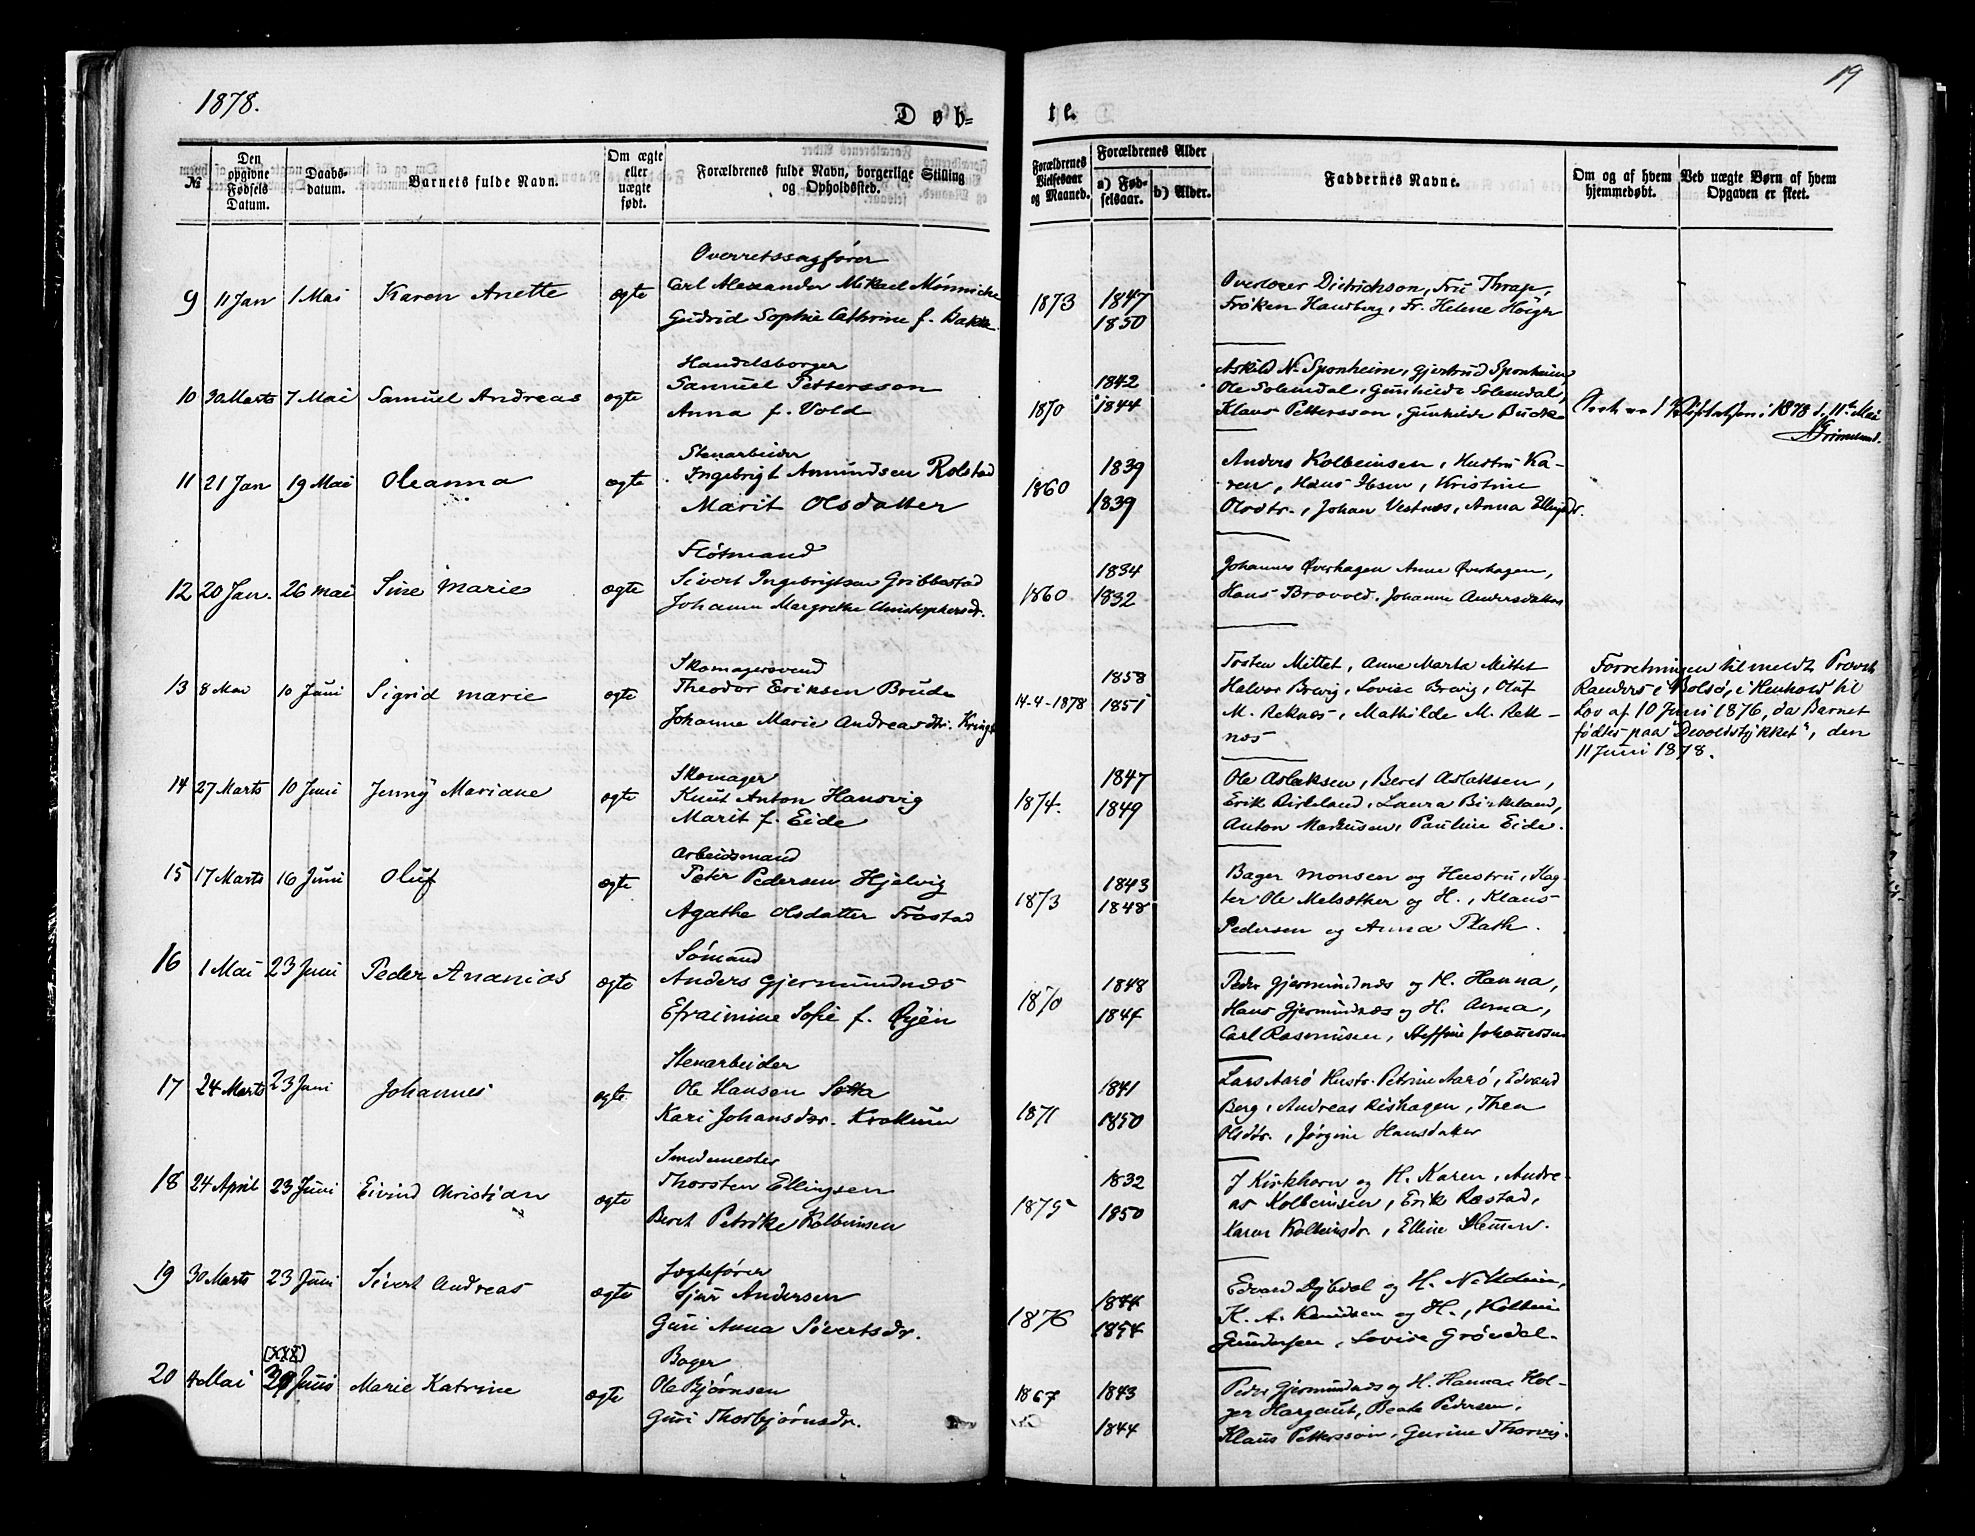 1878.
19
Døb-
te.
№
Den opgivne Fødsels Datum.
Daabs-datum.
Barnets fulde Navn.
Om ægte eller uægte født.
Forældrenes fulde Navn, borgerlige Stilling og Opholdssted.
Forældrenes Vielsesaar og Maaned.
Forældrenes Alder
a) Fød-selsaar.
b) Alder.
Faddernes Navne.
Om og af hvem hjemmedøbt.
Ved uægte Børn af hvem Opgaven er skeet.
Overretssagfører
9 11 Jan 1 Mai Karen Anette ægte Carl Alexander Mikael Mønniche 1873 1847 Overlærer Dietrichson, Fru Thrap,
Gudrid Sophie Cathrine f. Bakke 1850 Frøken Handberg, Fr. Helene
Handelsborger Askild N. Sponheim, Gjertrud Sponheim
10 30 Marts 7 Mai Samuel Andreas ægte Samuel Pettersson 1842 Ole Solemdal, Gunhilde Solemdal,
Anna f. Vold 1870 1844 Klaus Pettersson, Gunhilde 1878 d. 11te Mai
Stenarbeider
11 21 Jan 19 Mai Oleanna ægte Ingebrigt Amundsen Rolstad 1860 1839 Anders Kolbeinsen, Hustru Ka-
ren, Hans Ibsen, Kristine
Marit Olsdatter 1839 Olsdtr., Johan Vestnæs, Anna Ellingsdr.
Fløtmand
12 20 Jan. 26 Mai Sine Marie ægte Sivert Ingebrigtsen Gribbestad 1860 1834 Johannes Øverhagen Anne Øverhagen,
Johanne Margrethe Christophersdr. 1832 Hans Brovold. Johanne Andersdatter
Skomagersvend
13 8 Mai 10 Juni Sigrid Marie ægte Theodor Eriksen Brude 14-4-1878 1858 Tosten Mittet, Anne Marta Mittet
Johanne Marie Andreasdtr. 1851 Halvor Brevig, Lovise Brevig, Oluf
M. Reknes, Mathilde M. Rek-
næs
Forretningen tilmeldt Provst
Randers i Bolsø, i Henhold til
Lov af 10 Juni 1876, da Barnet
fødtes paa "Devoldstykket", den
11 Juni 1878.
Skomager
14 27 Marts 10 Juni Jenny Mariane ægte Knut Anton Hansvig 1874. 1847 Ole Aslaksen, Beret Aslaksen,
Marit f. Eide 1849 Erik Birkeland, Laura Birkeland,
Anton Markusen, Pauline Eide.
Arbeidsmand
15 17 Marts 16 Juni Oluf ægte Peter Pedersen Hjelvig 1873 1843 Bager Monsen og Hustru, Slag-
ter Ole Melsæther og H., Klaus
Agathe Olsdatter Frostad 1848 Pedersen og Anna Plath.
Sømand
16 1 Mai 23 Juni Peder Ananias ægte Anders Gjermundnæs 1870 1848 Peder Gjermundnæs og H. Hanna,
Efraimine Sofie f. Øyen 1847 Hans Gjermundnæs og H. Anna,
Carl Rasmusen, Steffine Johannessen
Stenarbeider
17 24 Marts 23 Juni Johannes ægte Ole Hansen Sotta 1871 1841 Lars Aarø Hustr. Petrine Aarø, Edvard
Kari Johansdtr. Krokum 1850 Berg, Andreas Rishagen, Thea
Olsdtr., Jørgine Hansdatter
Smedmester
18 24 April 23 Juni Eivind Christian ægte Thorsten Ellingsen 1875 1832 J Kirkhorn og H. Karen, Andre-
as Kolbeinsen, Erik Røstad,
Beret Petrike Kolbeinsen 1850 Karen Kolbeinsdr., Elline
Jægtefører
19 30 Marts 23 Juni Sivert Andreas ægte Sjur Andersen 1876 1844 Edvard Dybdal og H.
K. A. Knudsen og H., Kolbein
Guri Anna Sivertsdr. 1854 Gundersen, Lovise Grøndal.
(XXX)
Bager
20 4 Mai 30 Juni Marie Katrine ægte Ole Bjørnsen 1867 1843 Peder Gjermundnæs og H. Hanna, Hol-
ger Hargaut, Beate Pedersen,
Guri Thorbjørnsdr. 1844 Klaus Pettersson, Gurine